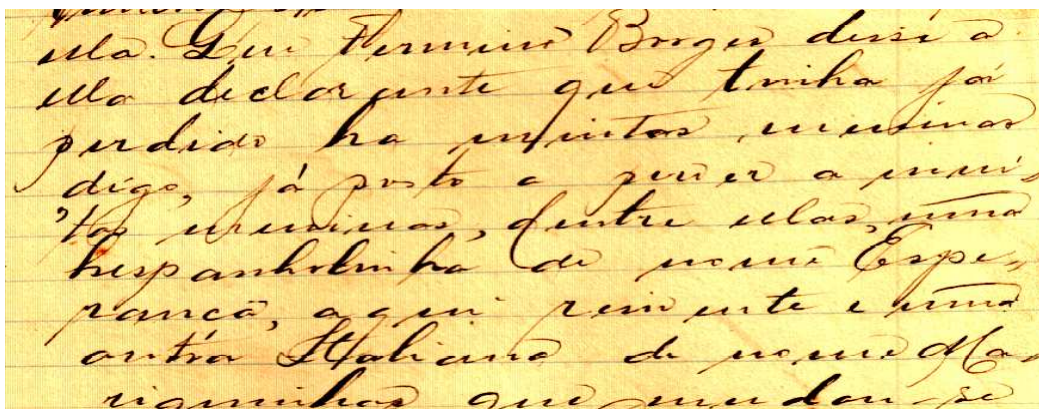 ella. Que Fermino Borges disse a
ella declarante que tinha já
perdido ha muintas meninas
digo, já posto a perder a muin-
tas meninas, dentre ellas, uma
hespanholinha de nome Espe-
rança, aqui rezidente e uma
outra Italiana de nome Ma-
riquinhas que mudou-se